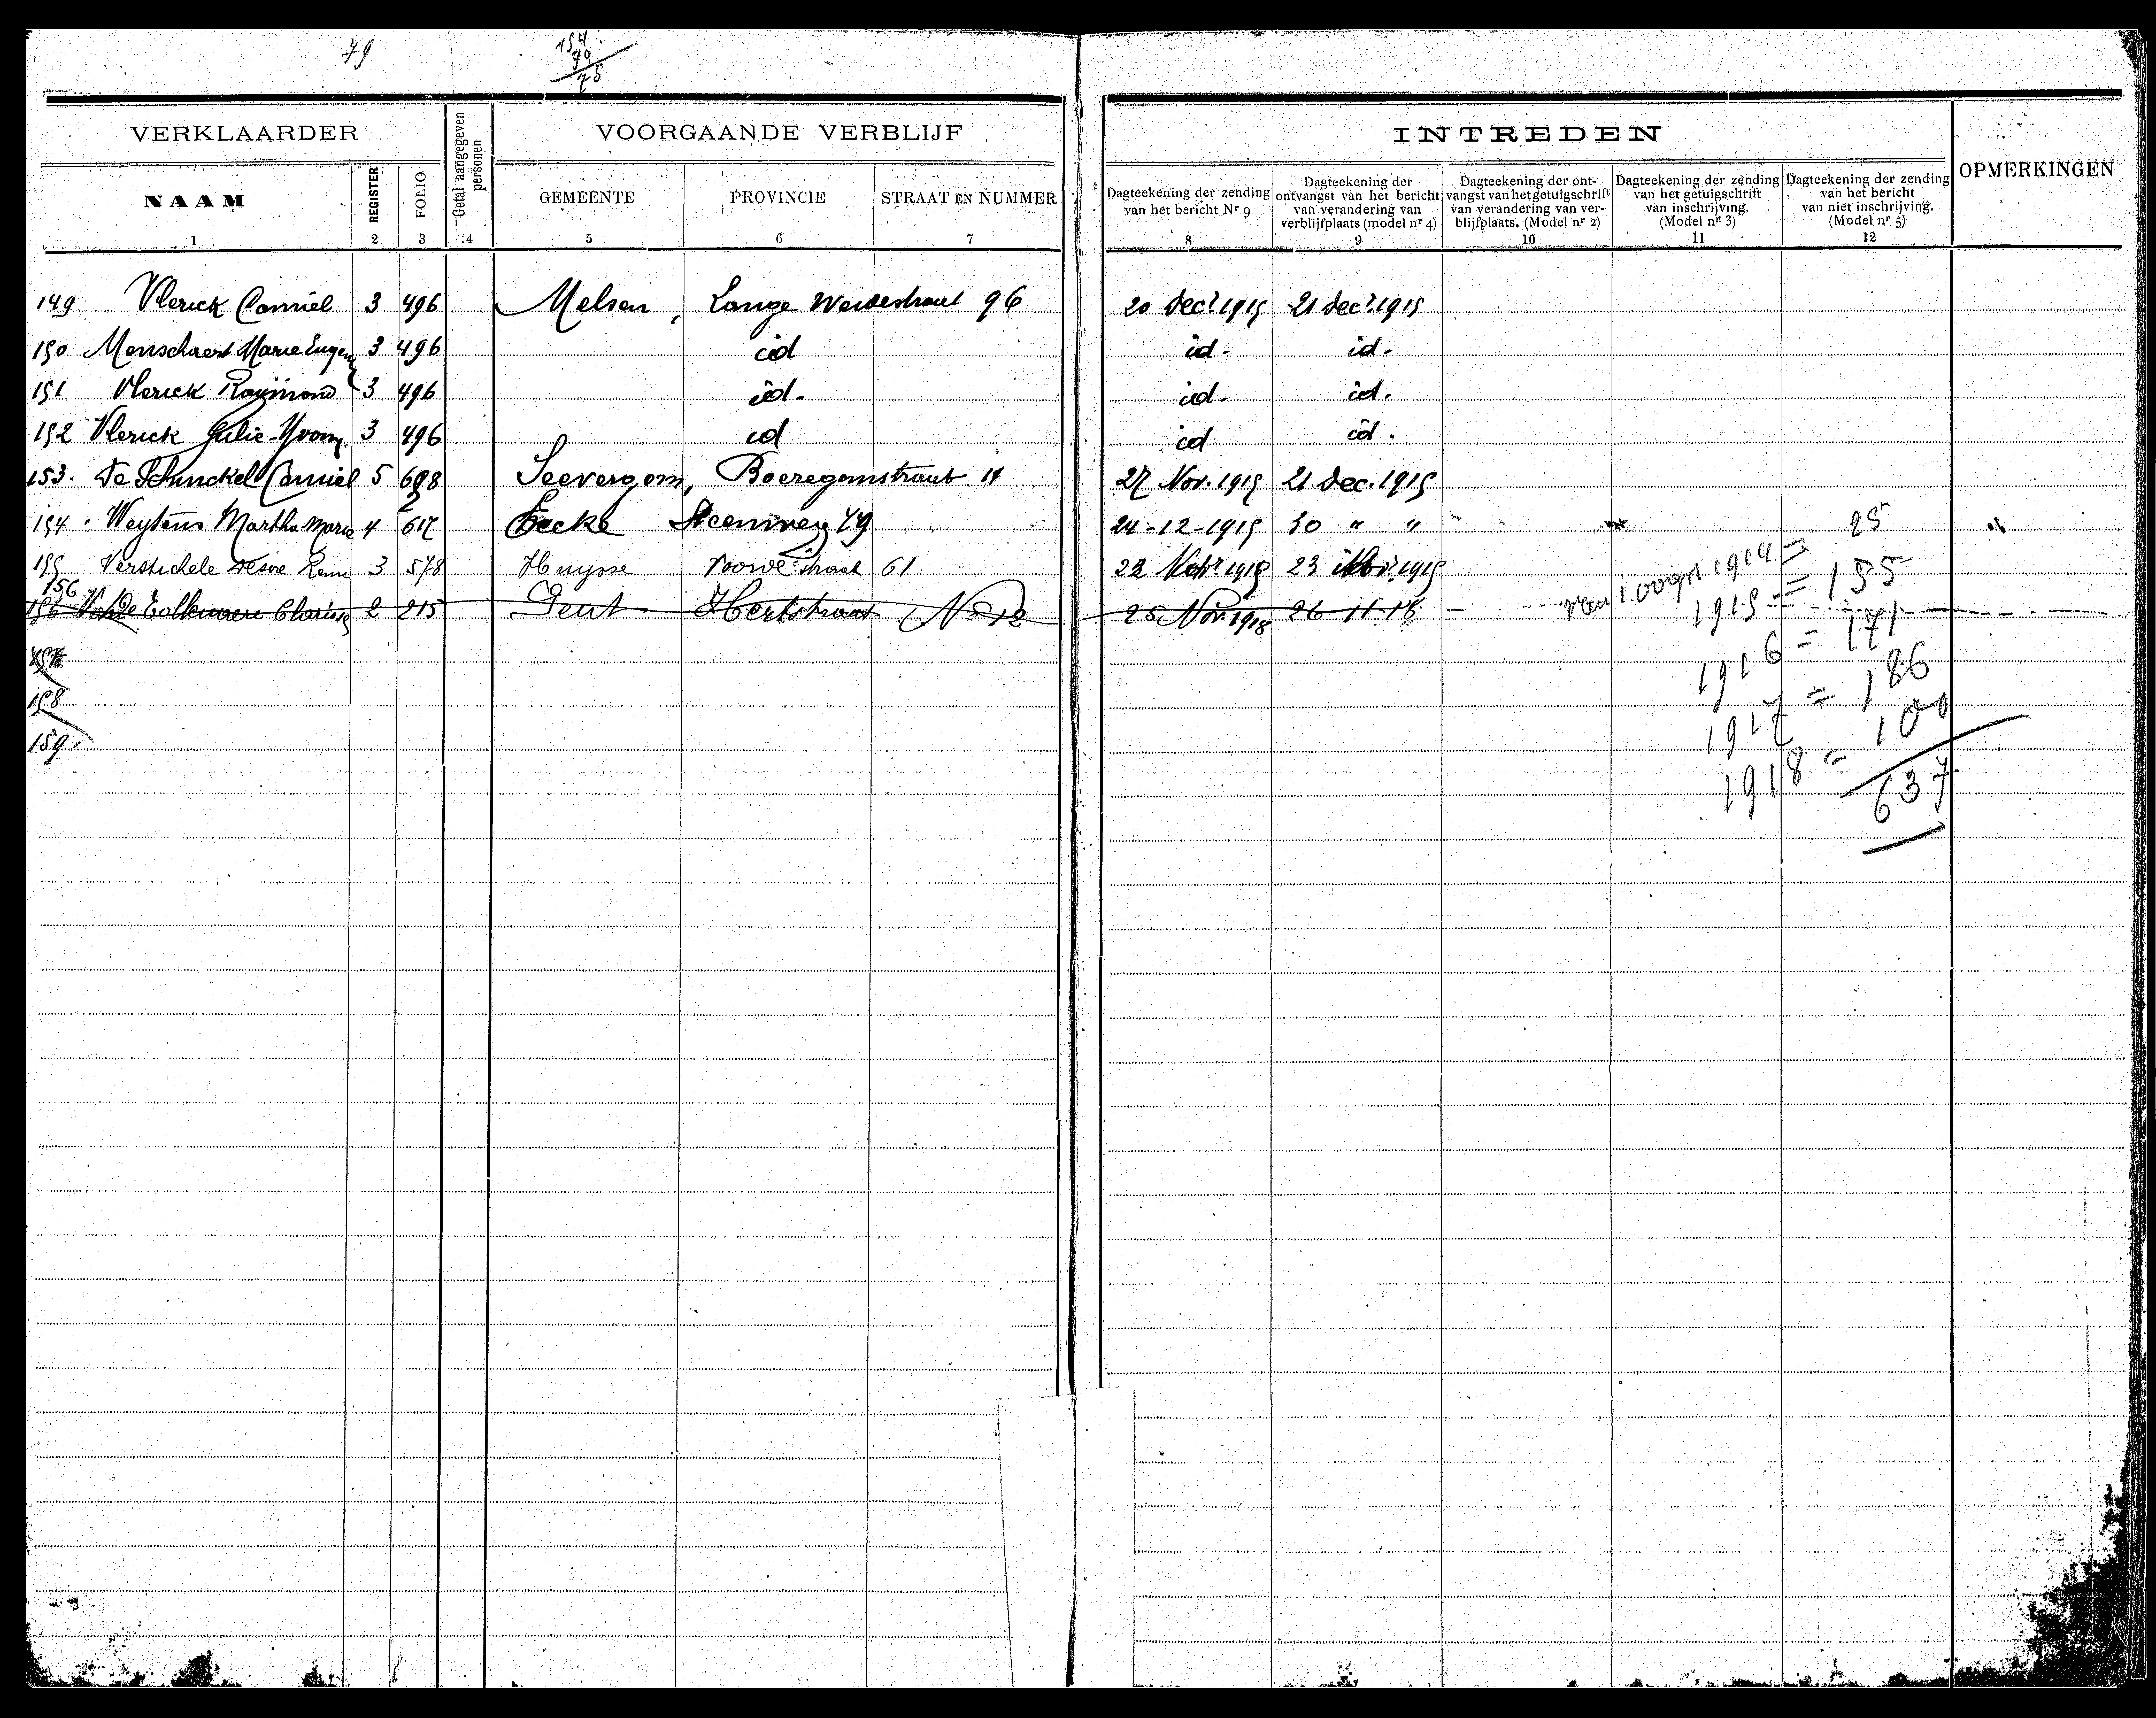 79
154
79
75
VERKLAARDER
Getal aangegeven personen
VOORGAANDE VERBLIJF
NAAM
REGISTER
FOLIO
GEMEENTE
PROVINCIE
STRAAT EN NUMMER
1 2 3 4 5 6 7
INTREDEN
OPMERKINGEN
Dagteekening der zending
van het bericht Nr 9
8
Dagteekening der
ontvangst van het bericht
van verandering van
verblijfplaats (model nr 4)
9
Dagteekening der ont-
vangst van het getuigschrift
van verandering van ver-
blijfplaats. (Model nr 2)
10
Dagteekening der zending
van het getuigschrift
van inschrijving.
(Model nr 3)
11
Dagteekening der zending
van het bericht
van niet inschrijving.
(Model nr 5)
12
149 Vlerick Camiel 3 496 Melsen, Lange 96 20 Decr 1915 21 Decr 1915
150 Menschaert Marie Eugen 3 496 id id. id.
151 Vlerick Raymond 3 496 id. id. id.
152 Vlerick Julie Yvonn 3 496 id id id.
153. De Schinckel Camiel 5 698 Seevergem, Boeregemstraat 14 27 Nov. 1915 21 Dec. 1915
154. Weytens Martha Maria 4 617 Eecke Steenweg 79 24-12-1915 30 " "
155 Verstichele Desire Remi 3 578 Huysse straat 61 22 1915 23 1915
156
156 Clarisse 2 215 Gent Hertstraat No 12 25 Nov. 1918 26 11 18
157
158
159.
Van 1 oogst 1914 = 25
1915 = 155
1916 = 171
1917 = 186
1918 = 100
637